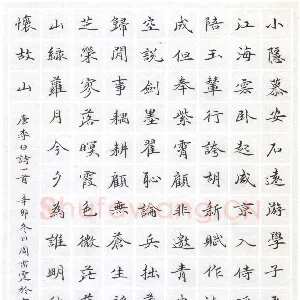 小隱慕安石遠遊學子
江海雲臥起咸京入侍
陪玉輦行誇胡新賦作
成但奉紫霄顧非邀青
空說劍墨翟恥論兵拙
歸閒事耦耕顧無蒼生
芝榮寥落暝霞色微茫
山綠蘿月今夕為誰明
懷故山
唐李白詩一首辛卯冬日周
Shufawang.CN